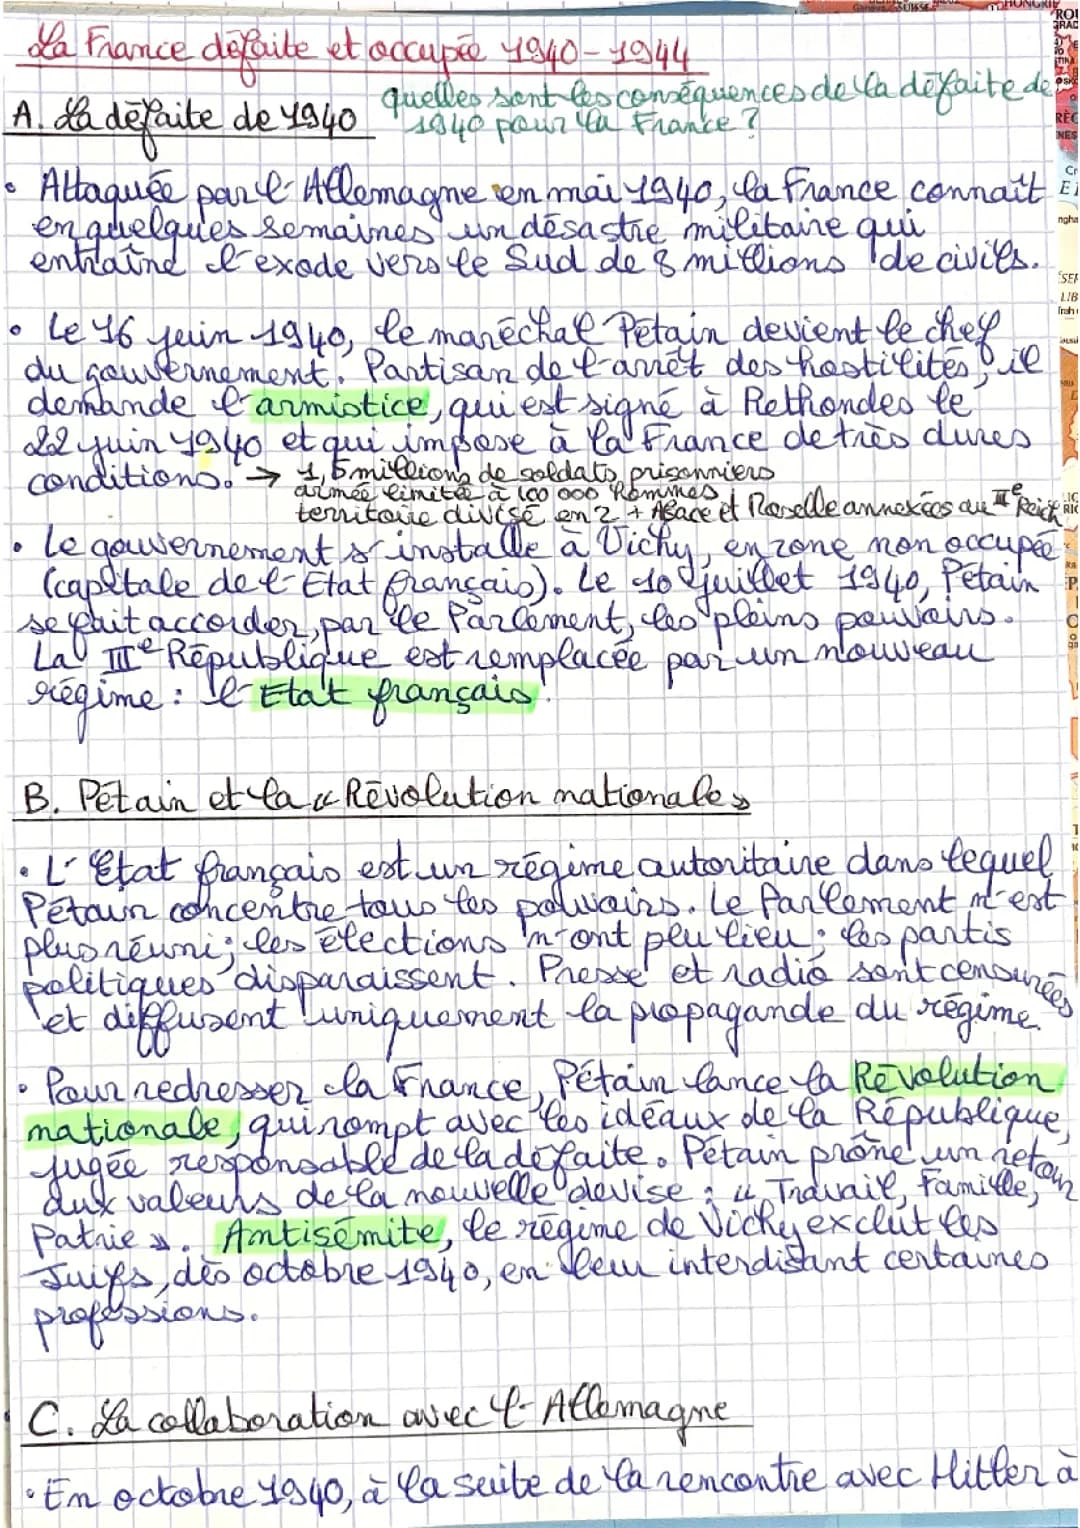 La France défaite et occupée 1940-1944
quelles sont les conséquences de la défaite de
1940 pour la France ?
A. La défaite de 1940
• Attaquée par l'Allemagne en mai 1940, la France connaît
en quelques semaines un désastre militaire qui
entraîne l'exode vers le Sud de 8 millions de civils.
• Le 16 juin 1940, le maréchal Pétain devient le chef
du gouvernement. Partisan de l'arrêt des hostilités, il
demande l'armistice, qui est signé à Rethondes le
22 juin 1940 et qui impose à la France de très dures
conditions. → 1,5 millions de soldats prisonniers
armée limitée à 100 000 hommes
territoire divisé en 2 + Alsace et Moselle annexées au IIIe Reich
• Le gouvernement s'installe à Vichy, en zone non occupée
(capitale de l'Etat français). Le 10 juillet 1940, Pétain
se fait accorder, par le Parlement, les pleins pouvoirs.
La IIIe République est remplacée par un nouveau
régime : l'Etat français.
B. Pétain et la « Révolution nationale »
• L'Etat français est un régime autoritaire dans lequel
Pétain concentre tous les pouvoirs. Le Parlement n'est
plus réuni ; les élections n'ont plu lieu ; les partis
politiques disparaissent. Presse et radio sont censurées
et diffusent uniquement la propagande du régime.
• Pour redresser la France, Pétain lance la Révolution
nationale, qui rompt avec les idéaux de la République,
jugée responsable de la défaite. Pétain prône un retour
aux valeurs de la nouvelle devise : « Travail, Famille,
Patrie ». Antisémite, le régime de Vichy exclût les
Juifs, dès octobre 1940, en leur interdisant certaines
professions.
C. La collaboration avec l'Allemagne
• En octobre 1940, à la suite de la rencontre avec Hitler à